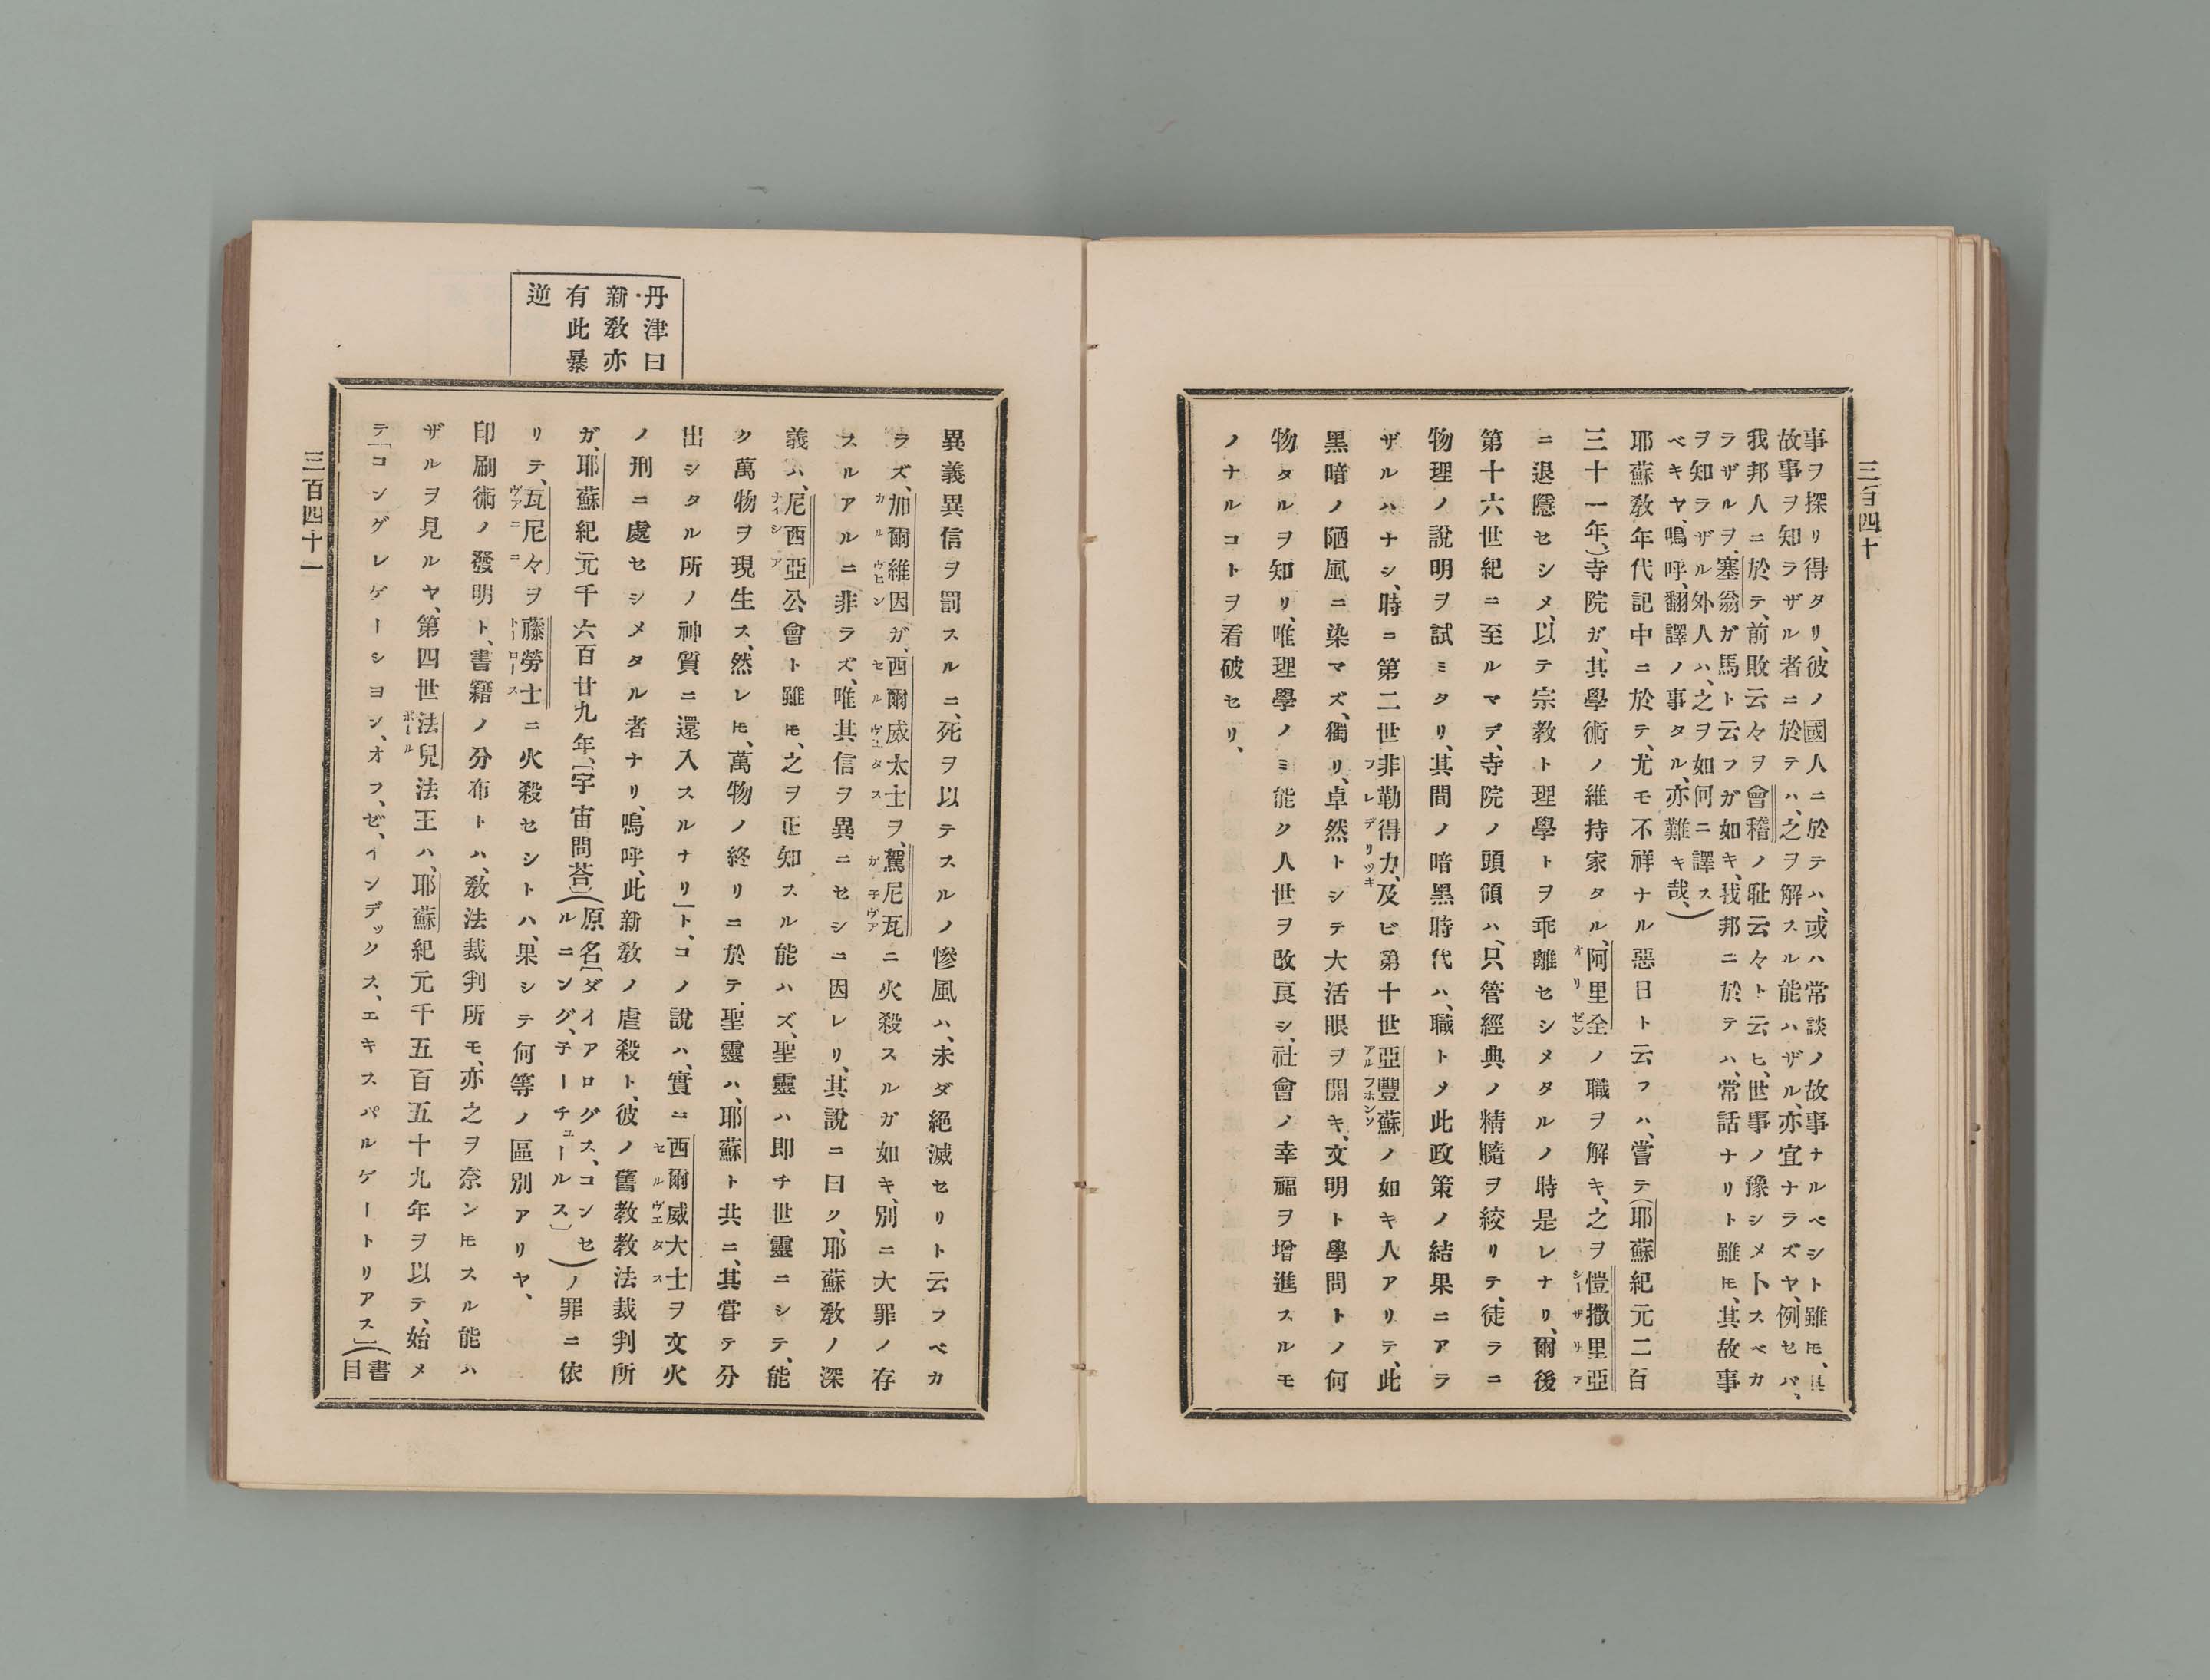 三百四十
事ヲ探リ得タリ、彼ノ國人ニ於テハ、或ハ常談ノ故事ナルベシト雖𪜈、其
故事ヲ知ラザル者ニ於テハ、之ヲ解スル能ハザル、亦宜ナラズヤ、例セバ、
我邦人ニ於テ、前敗云々ヲ會稽ノ耻云々ト云ヒ、世事ノ豫シメトスベカ
ラザルヲ、塞翁ガ馬ト云フガ如キ、我邦ニ於テハ、常話ナリト雖𪜈、其故事
ヲ知ラザル外人ハ、之ヲ如何ニ譯ス
ベキヤ、嗚呼、翻譯ノ事タル、亦難キ哉、)
耶蘇敎年代記中ニ於テ、尤モ不祥ナル惡日ト云フハ、嘗テ(耶蘇紀元二百
三十一年、)寺院ガ、其學術ノ維持家タル、阿里全ノ職ヲ解キ、之ヲ愷撒里亞
オリゼン
シーザリア
ニ退隱セシメ、以テ宗教ト理學トヲ乖離セシメタルノ時是レナリ、爾後
第十六世紀ニ至ルマデ、寺院ノ頭領ハ、只管經典ノ精髓ヲ絞リテ、徒ラニ
物理ノ說明ヲ試ミタリ、其間ノ暗黑時代ハ、職トメ此政策ノ結果ニアラ
ザルハナシ、時ニ第二世非勒得力、及ビ第十世亞豐蘇ノ如キ人アリテ、此
フレデリッキ
アルフホンソ
黑暗ノ陋風ニ染マズ、獨リ、卓然トシテ大活眼ヲ開キ、文明ト學問トノ何
物タルヲ知リ、唯理學ノミ能ク人世ヲ改良シ、社會ノ幸福ヲ增進スルモ
ノナルコトヲ看破セリ、
丹津曰
新敎亦
有此暴
逆
異義異信ヲ罰スルニ、死ヲ以テスルノ慘風ハ、未ダ絕滅セリト云フベカ
ラズ、加爾維因ガ、西爾威太士ヲ、駕尼瓦ニ火殺スルガ如キ、別ニ大罪ノ存
カルヴヒン
セルヴエタス
ガ子ヴア
スルアルニ非ラズ、唯其信ヲ異ニセシニ因レリ、其說ニ曰ク、耶蘇敎ノ深
義ハ、尼西亞公會ト雖𪜈、之ヲ正知スル能ハズ、聖靈ハ即チ世靈ニシテ、能
ナイシア
ク萬物ヲ現生ス、然レ𪜈、萬物ノ終リニ於テ、聖靈ハ、耶蘇ト共ニ、其嘗テ分
出シタル所ノ神質ニ還入スルナリ」ト、コノ說ハ、實ニ西爾威大士ヲ文火
セルヴエタス
ノ刑ニ處セシメタル者ナリ、嗚呼、此新敎ノ虐殺ト、彼ノ舊教教法裁判所
ガ、耶蘇紀元千六百廿九年、[宇宙問荅](原名[ダイアログス、コンセルニング、子ーチュールス])ノ罪ニ依
リテ、瓦尼々ヲ藤勞士ニ火殺セシトハ、果シテ何等ノ區別アリヤ、
ヴアニニ
トーロース
印刷術ノ發明ト、書籍ノ分布トハ、敎法裁判所モ、亦之ヲ奈ン𪜈スル能ハ
ザルヲ見ルヤ、第四世法兒法王ハ、耶蘇紀元千五百五十九年ヲ以テ、始メ
ポール
テ「コングレゲーシヨン、オフ、ゼ、インデックス、エキスパルゲートリアス」(書目
三百四十一